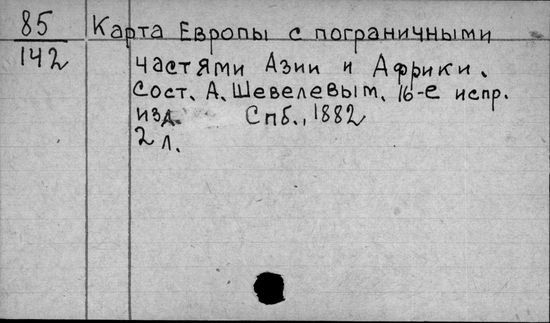 85 Карта Европы с пограничными
142 частями Азии и Африки.
Сост. А. Шевелевым. 16-е испр.
изд. Спб., 1882
2 л.